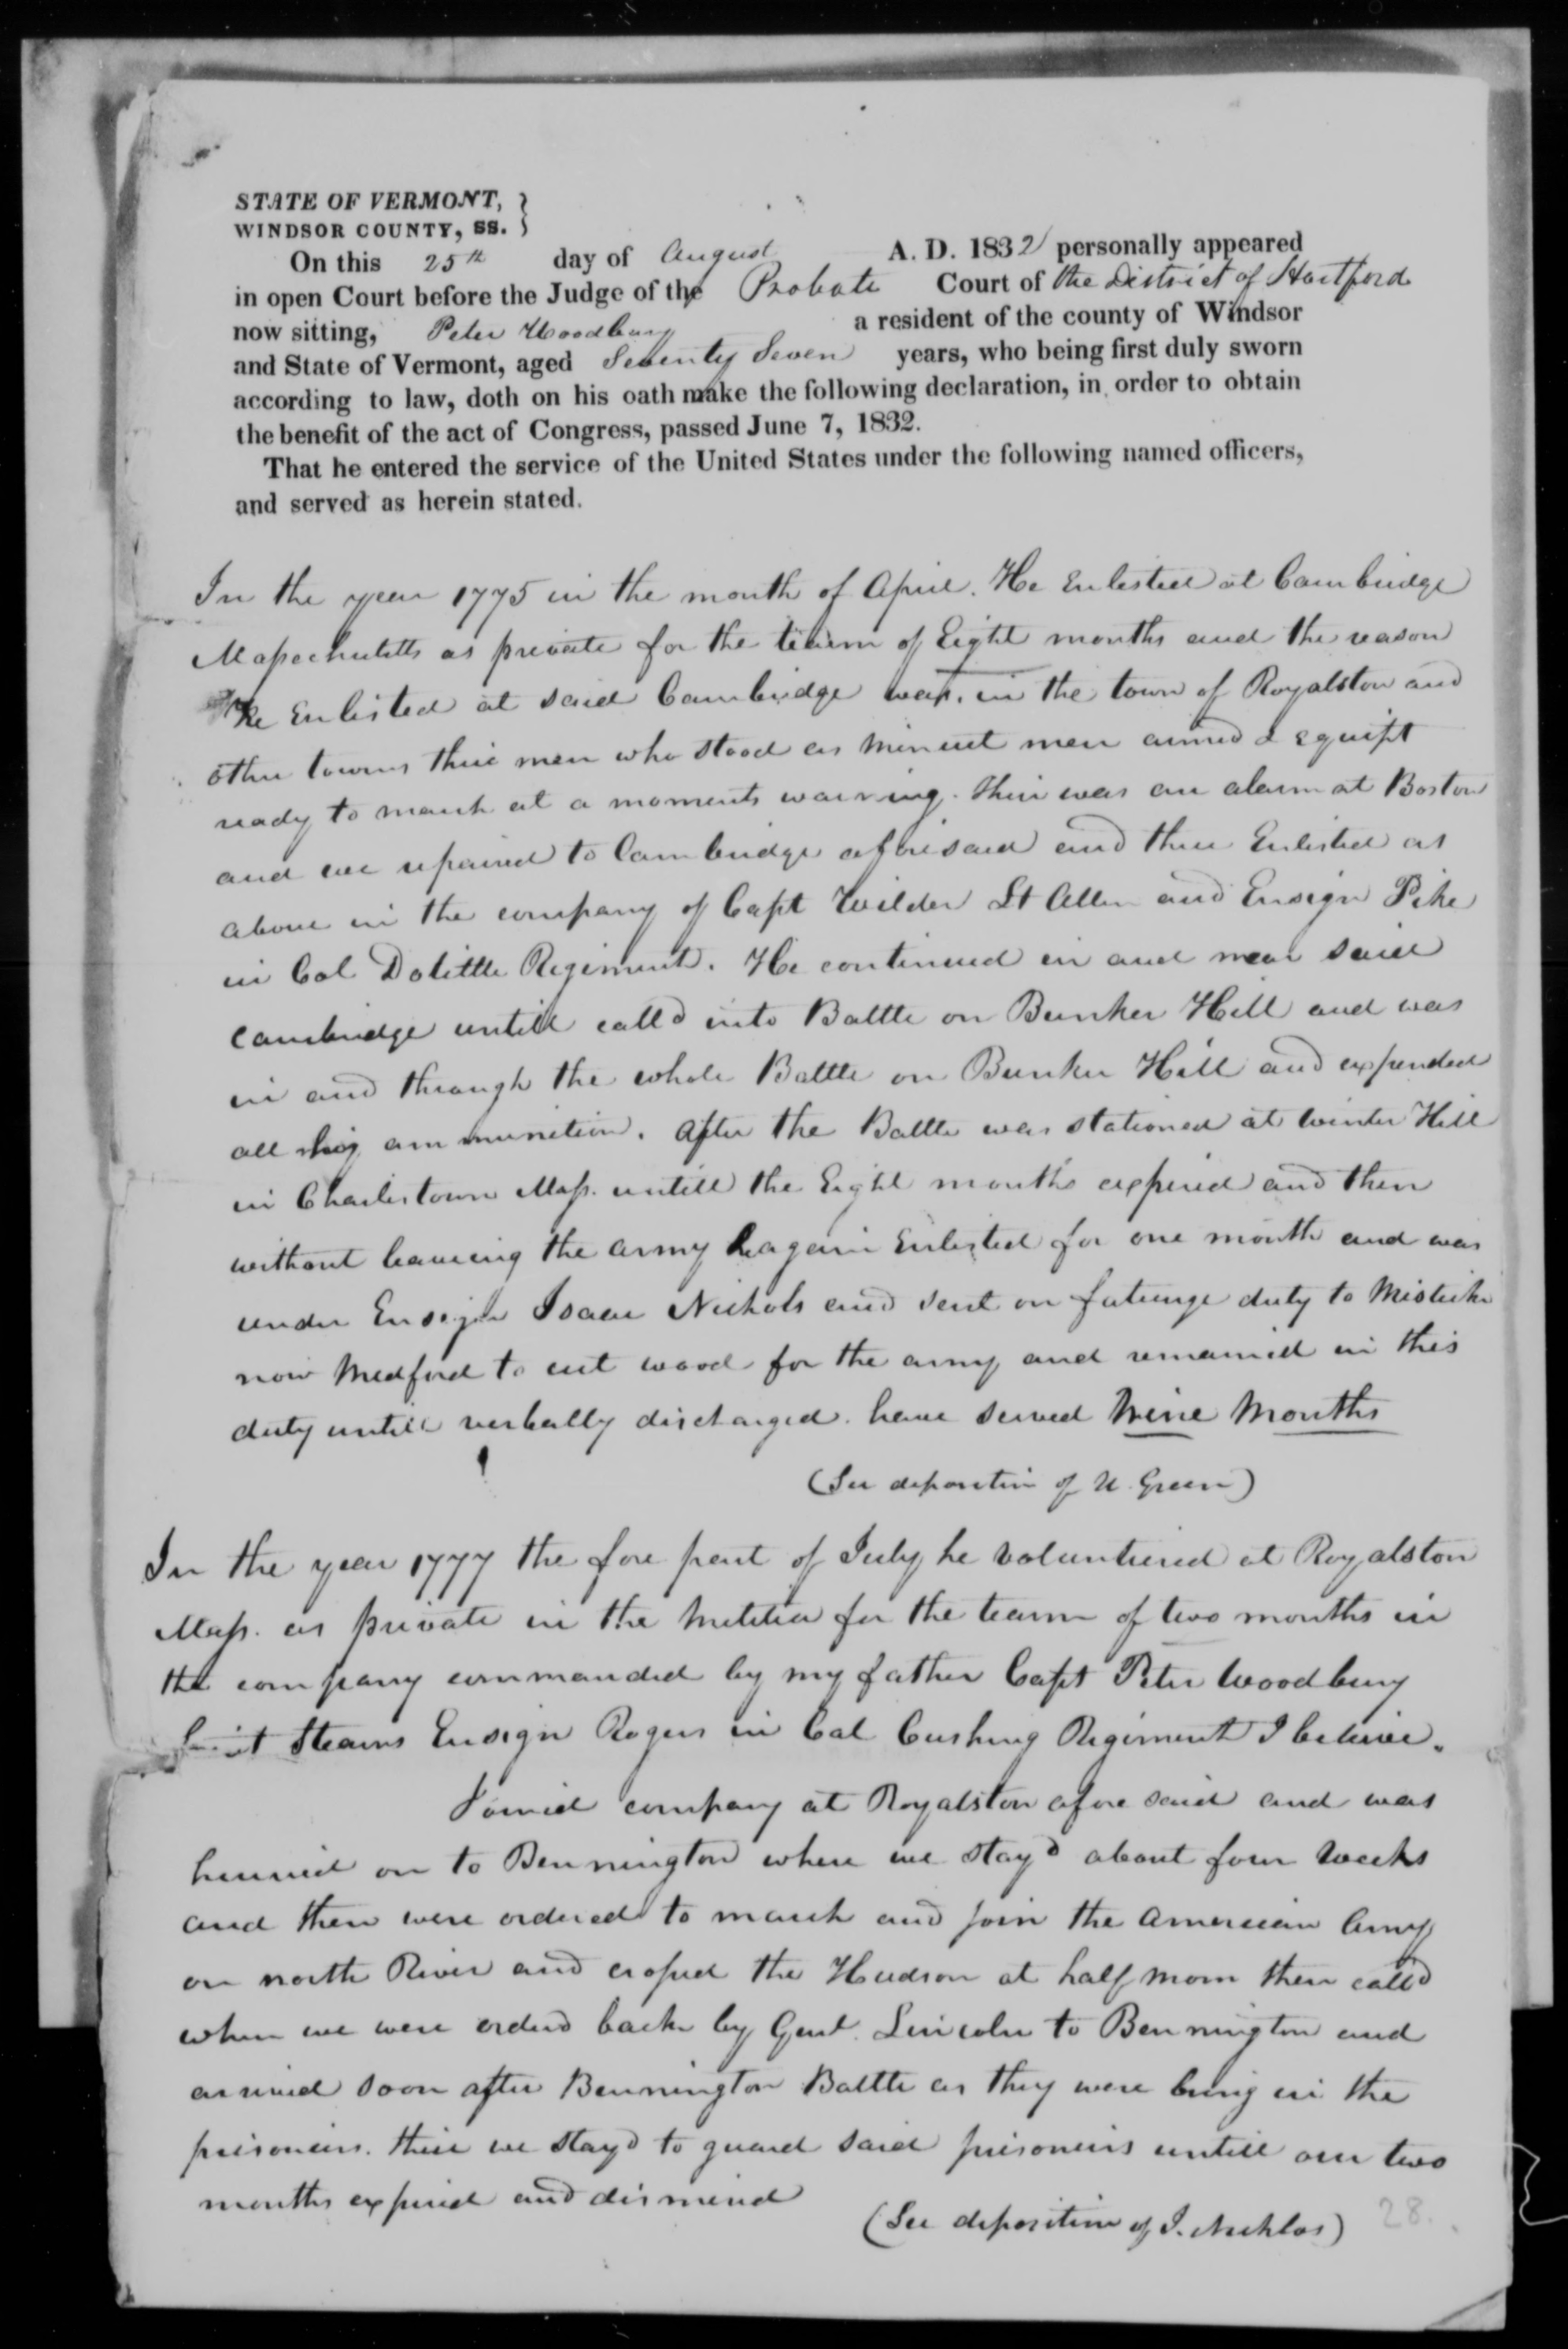 STATE OF VERMONT, }
WINDSOR COUNTY, SS. }
On this 25th day of August A. D. 1832 personally appeared
in open Court before the Judge of the Probate Court of the District of Hartford
now sitting, Peter Woodbury a resident of the county of Windsor
and State of Vermont, aged Seventy Seven years, who being first duly sworn
according to law, doth on his oath make the following declaration, in order to obtain
the benefit of the act of Congress, passed June 7, 1832.
That he entered the service of the United States under the following named officers,
and served as herein stated.
In the year 1775 in the month of April. He Enlisted at Cambridge
Massachusetts as private for the tearm of Eight months and the reason
He Enlisted at said Cambridge was. in the town of Royalston and
other towns thire men who stood as minuit men armed & equipt
ready to march at a moments warning. thire was an alarm at Boston
and we repaired to Cambridge aforesaid and thire Enlisted as
above in the company of Capt Wilder Lt Allen and Ensign Pike
in Col Dolittle Regiment. He continued in and near said
Cambridge untill call'd into Battle on Bunker Hill and was
in and through the whole Battle on Bunker Hill and expended
all his ammunition. After the Battle was stationed at Winter Hill
in Charlestown Mass. untill the Eight months expired and then
without leaving the army he again Enlisted for one month and was
under Ensign Isaac Nichols and sent on fatuige duty to Mistick
now Medford to cut wood for the army and remained in this
duty untill verbally discharged. have served Nine Months
(See deposition of N. Green)
In the year 1777 the fore part of July he volunteered at Royalston
Mass. as private in the Militia for the tearm of two months in
the company commanded by my father Capt Peter Woodbury
Lieut Stearns Ensign Rogers in Col Cushing Regiment I believe.
Joined company at Royalston afore said and was
hurried on to Bennington where we stay'd about four weeks
and then were ordered to march and join the American Army
on north River and crossed the Hudson at half moon then call'd
when we were orderd back by Genl. Lincoln to Bennington and
arrived soon after Bennington Battle as they were bring in the
prisoners. thire we stay'd to guard said prisoners untill our two
months expired and dismised
(See deposition of I. Nichlos)
28.